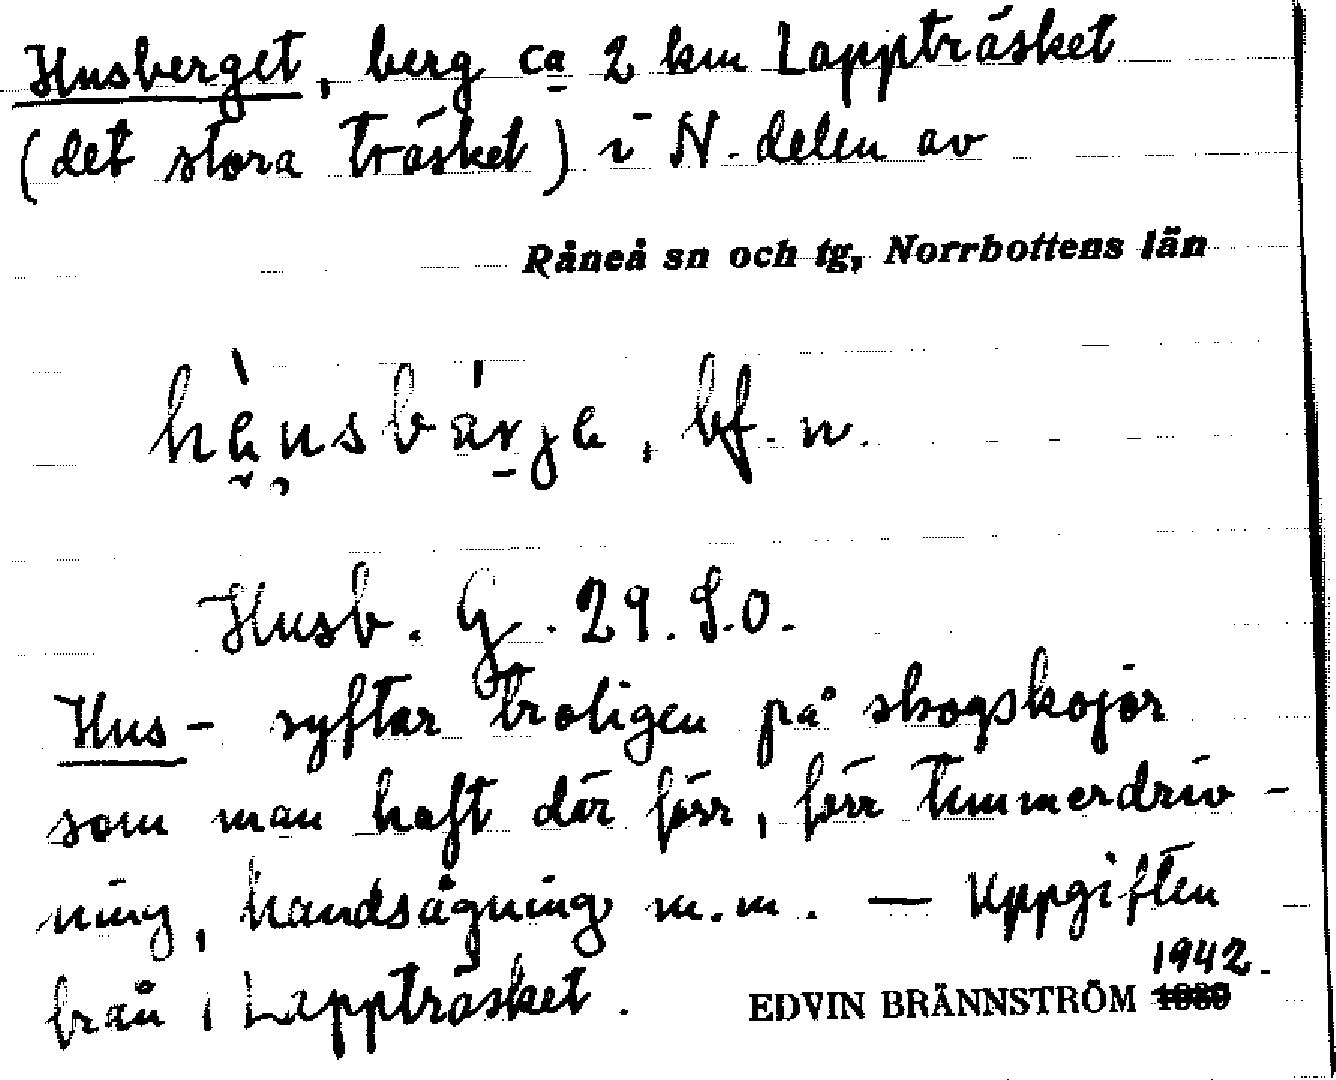 Husberget, berg ca 2 km Lappträsket
(det stora träsket) i N. delen av
Råneå sn och tg, Norrbottens län
bf. n.
Husb. G. 29. S.O.
Hus- syftar troligen på skogskojor
som man haft där förr, förr timmerdriv-
ning, handsågning m.m. — Uppgiften
från i Lappträsket.
1942.
EDVIN BRÄNNSTRÖM